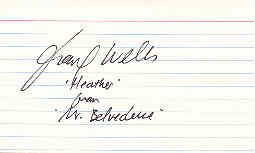 Tracy Wells
'Heather'
from
"Mr. Belvedere"